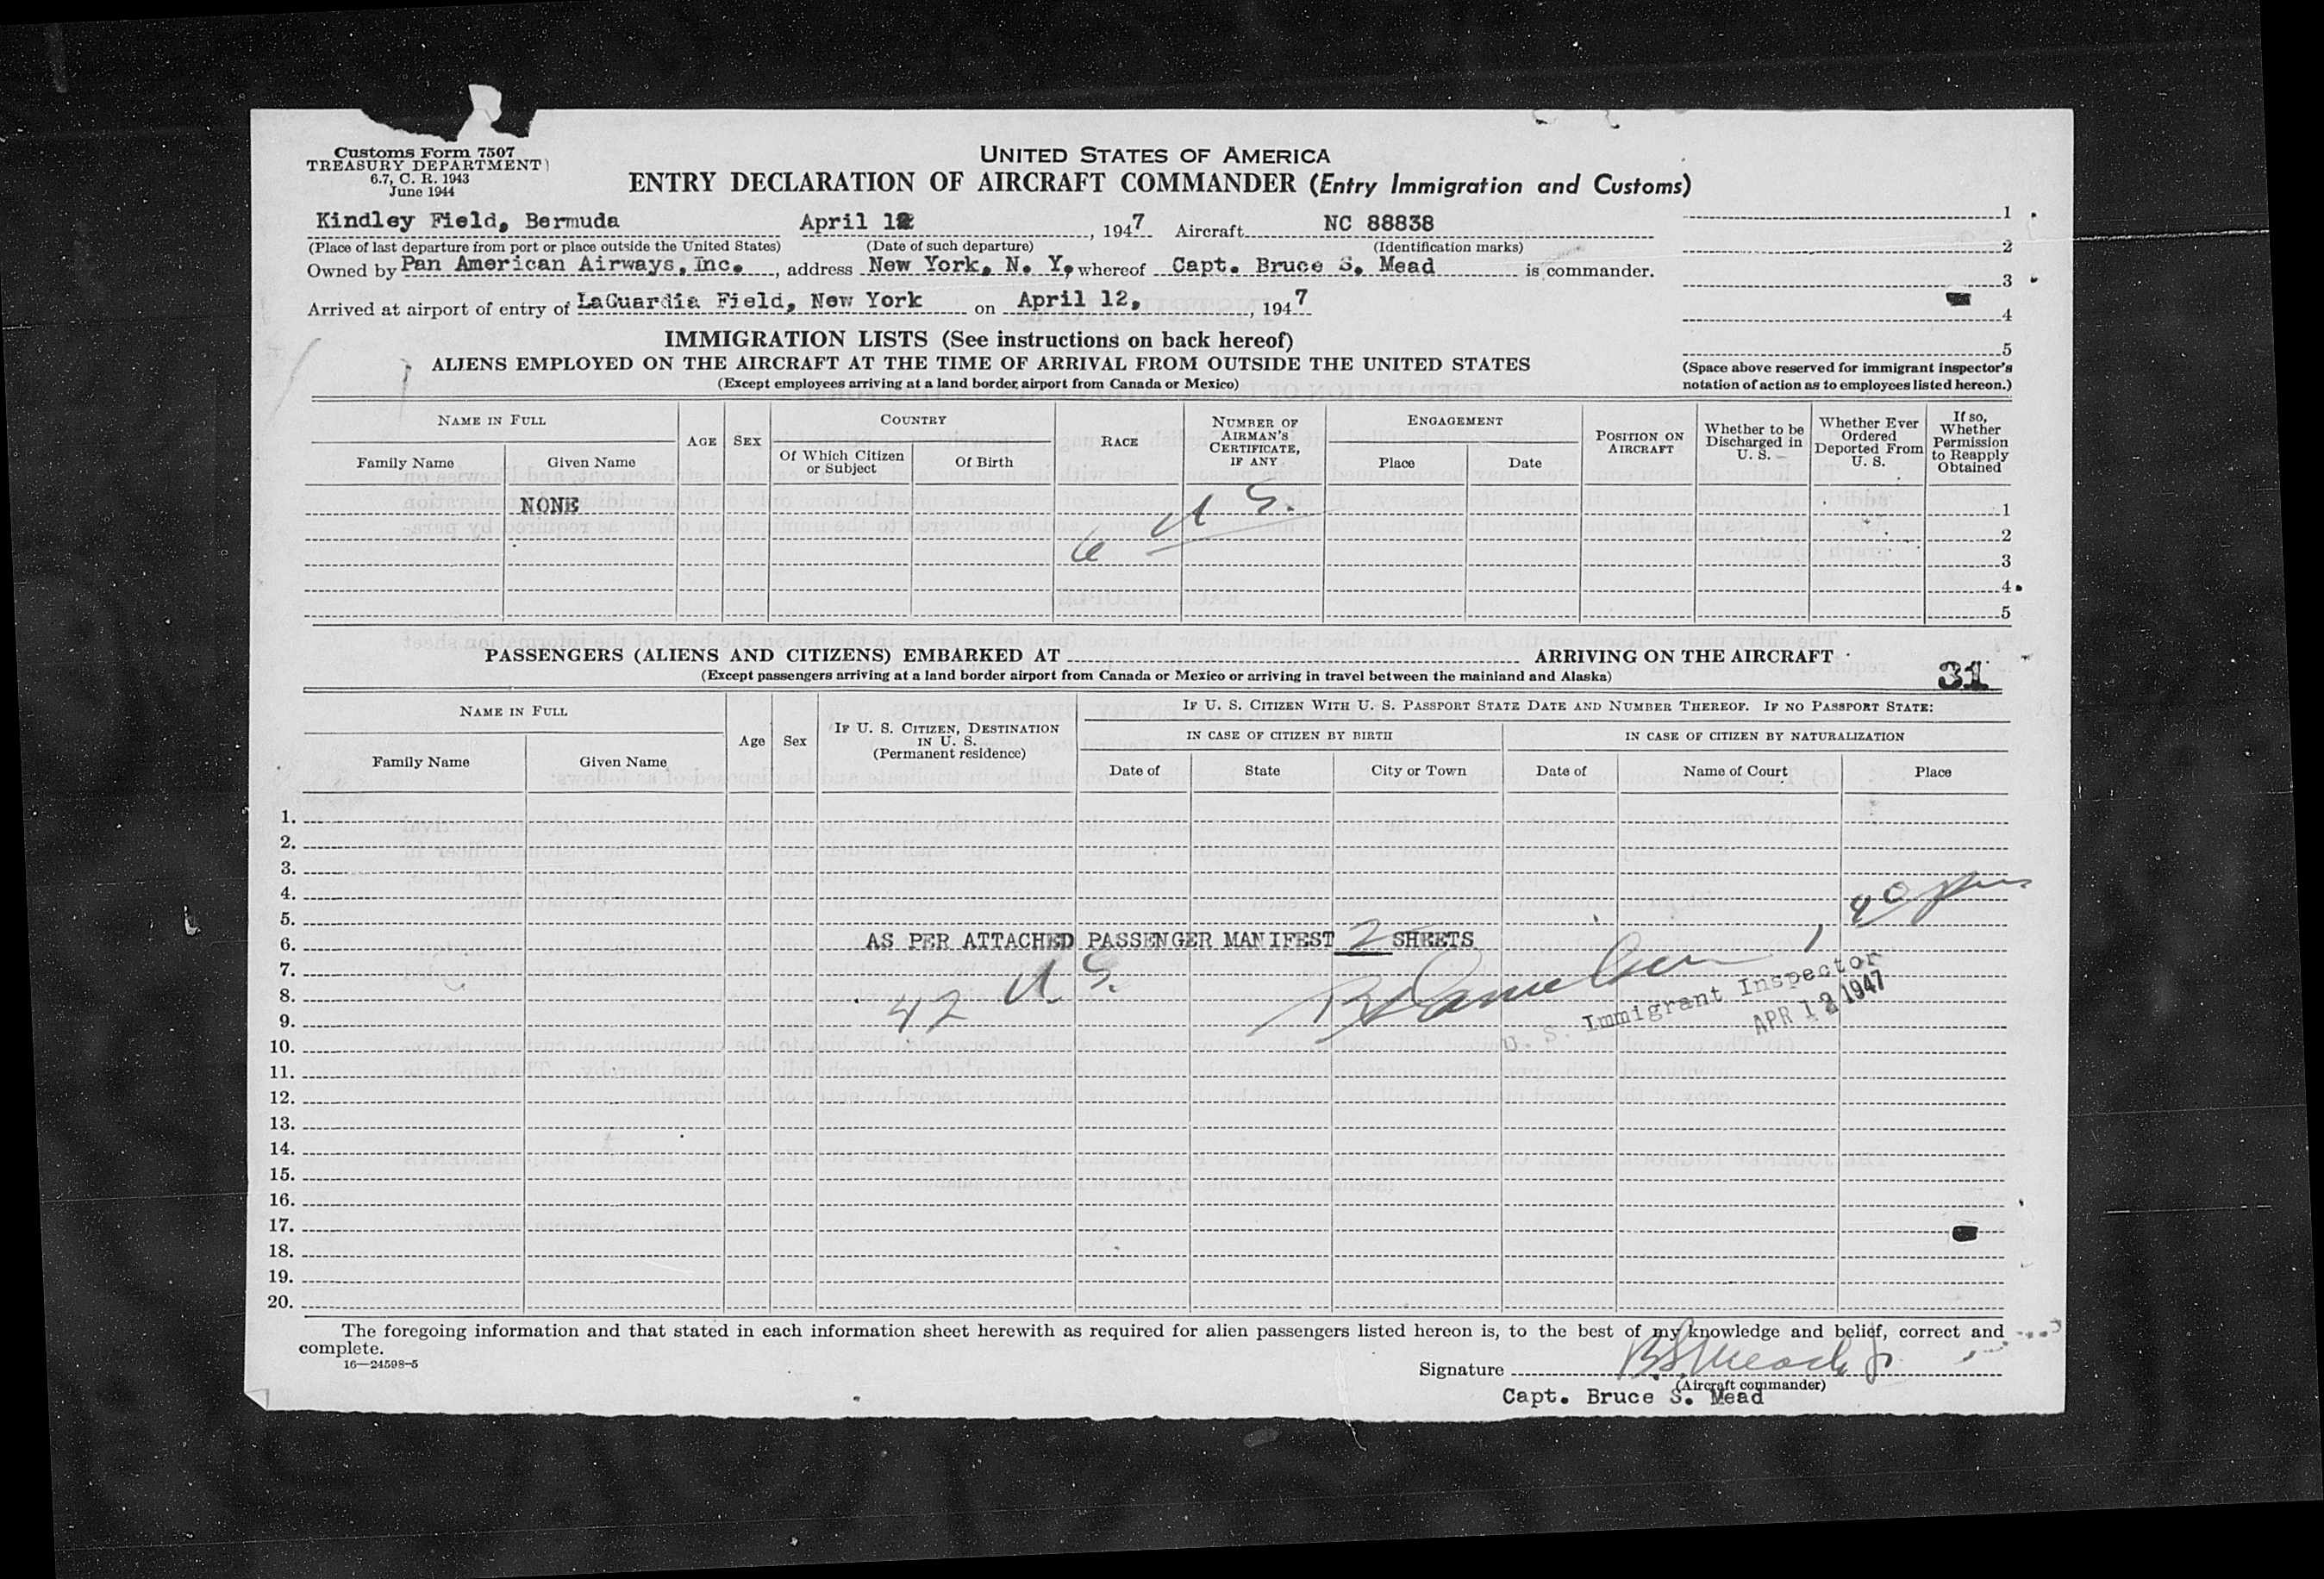 Customs Form 7507
TREASURY DEPARTMENT
6.7, C. R. 1943
June 1944
UNITED STATES OF AMERICA
ENTRY DECLARATION OF AIRCRAFT COMMANDER (Entry Immigration and Customs)
Kindley Field, Bermuda April 12, 1947 Aircraft NC 88838
(Place of last departure from port or place outside the United States) (Date of such departure) (Identification marks)
Owned by Pan American Airways, Inc., address New York, N. Y, whereof Capt. Bruce S. Mead is commander.
Arrived at airport of entry of LaGuardia Field, New York on April 12, , 1947
1
2
3
4
5
(Space above reserved for immigrant inspector's
notation of action as to employees listed hereon.)
IMMIGRATION LISTS (See instructions on back hereof)
ALIENS EMPLOYED ON THE AIRCRAFT AT THE TIME OF ARRIVAL FROM OUTSIDE THE UNITED STATES
(Except employees arriving at a land border airport from Canada or Mexico)
NAME IN FULL
Family Name Given Name
AGE SEX
COUNTRY
Of Which Citizen or Subject Of Birth
RACE
NUMBER OF AIRMAN'S CERTIFICATE, IF ANY
ENGAGEMENT
Place Date
POSITION ON AIRCRAFT
Whether to be Discharged in U. S.
Whether Ever Ordered Deported From U. S.
If so, Whether Permission to Reapply Obtained
NONE 1
6 U S. 2
3
4
5
PASSENGERS (ALIENS AND CITIZENS) EMBARKED AT ARRIVING ON THE AIRCRAFT
(Except passengers arriving at a land border airport from Canada or Mexico or arriving in travel between the mainland and Alaska)
31
NAME IN FULL
Family Name Given Name
Age Sex
IF U. S. CITIZEN, DESTINATION IN U. S. (Permanent residence)
IF U. S. CITIZEN WITH U. S. PASSPORT STATE DATE AND NUMBER THEREOF. IF NO PASSPORT STATE:
IN CASE OF CITIZEN BY BIRTH IN CASE OF CITIZEN BY NATURALIZATION
Date of State City or Town Date of Name of Court Place
1.
2.
3.
4.
5.
6. AS PER ATTACHED PASSENGER MANIFEST 2 SHEETS
7. U S.
8. 42
U. S. Immigrant Inspector
APR 12 1947
9.
10.
11.
12.
13.
14.
15.
16.
17.
18.
19.
20.
The foregoing information and that stated in each information sheet herewith as required for alien passengers listed hereon is, to the best of my knowledge and belief, correct and
complete.
16—24598-5
Signature B S Mead Jr
(Aircraft commander)
Capt. Bruce S. Mead